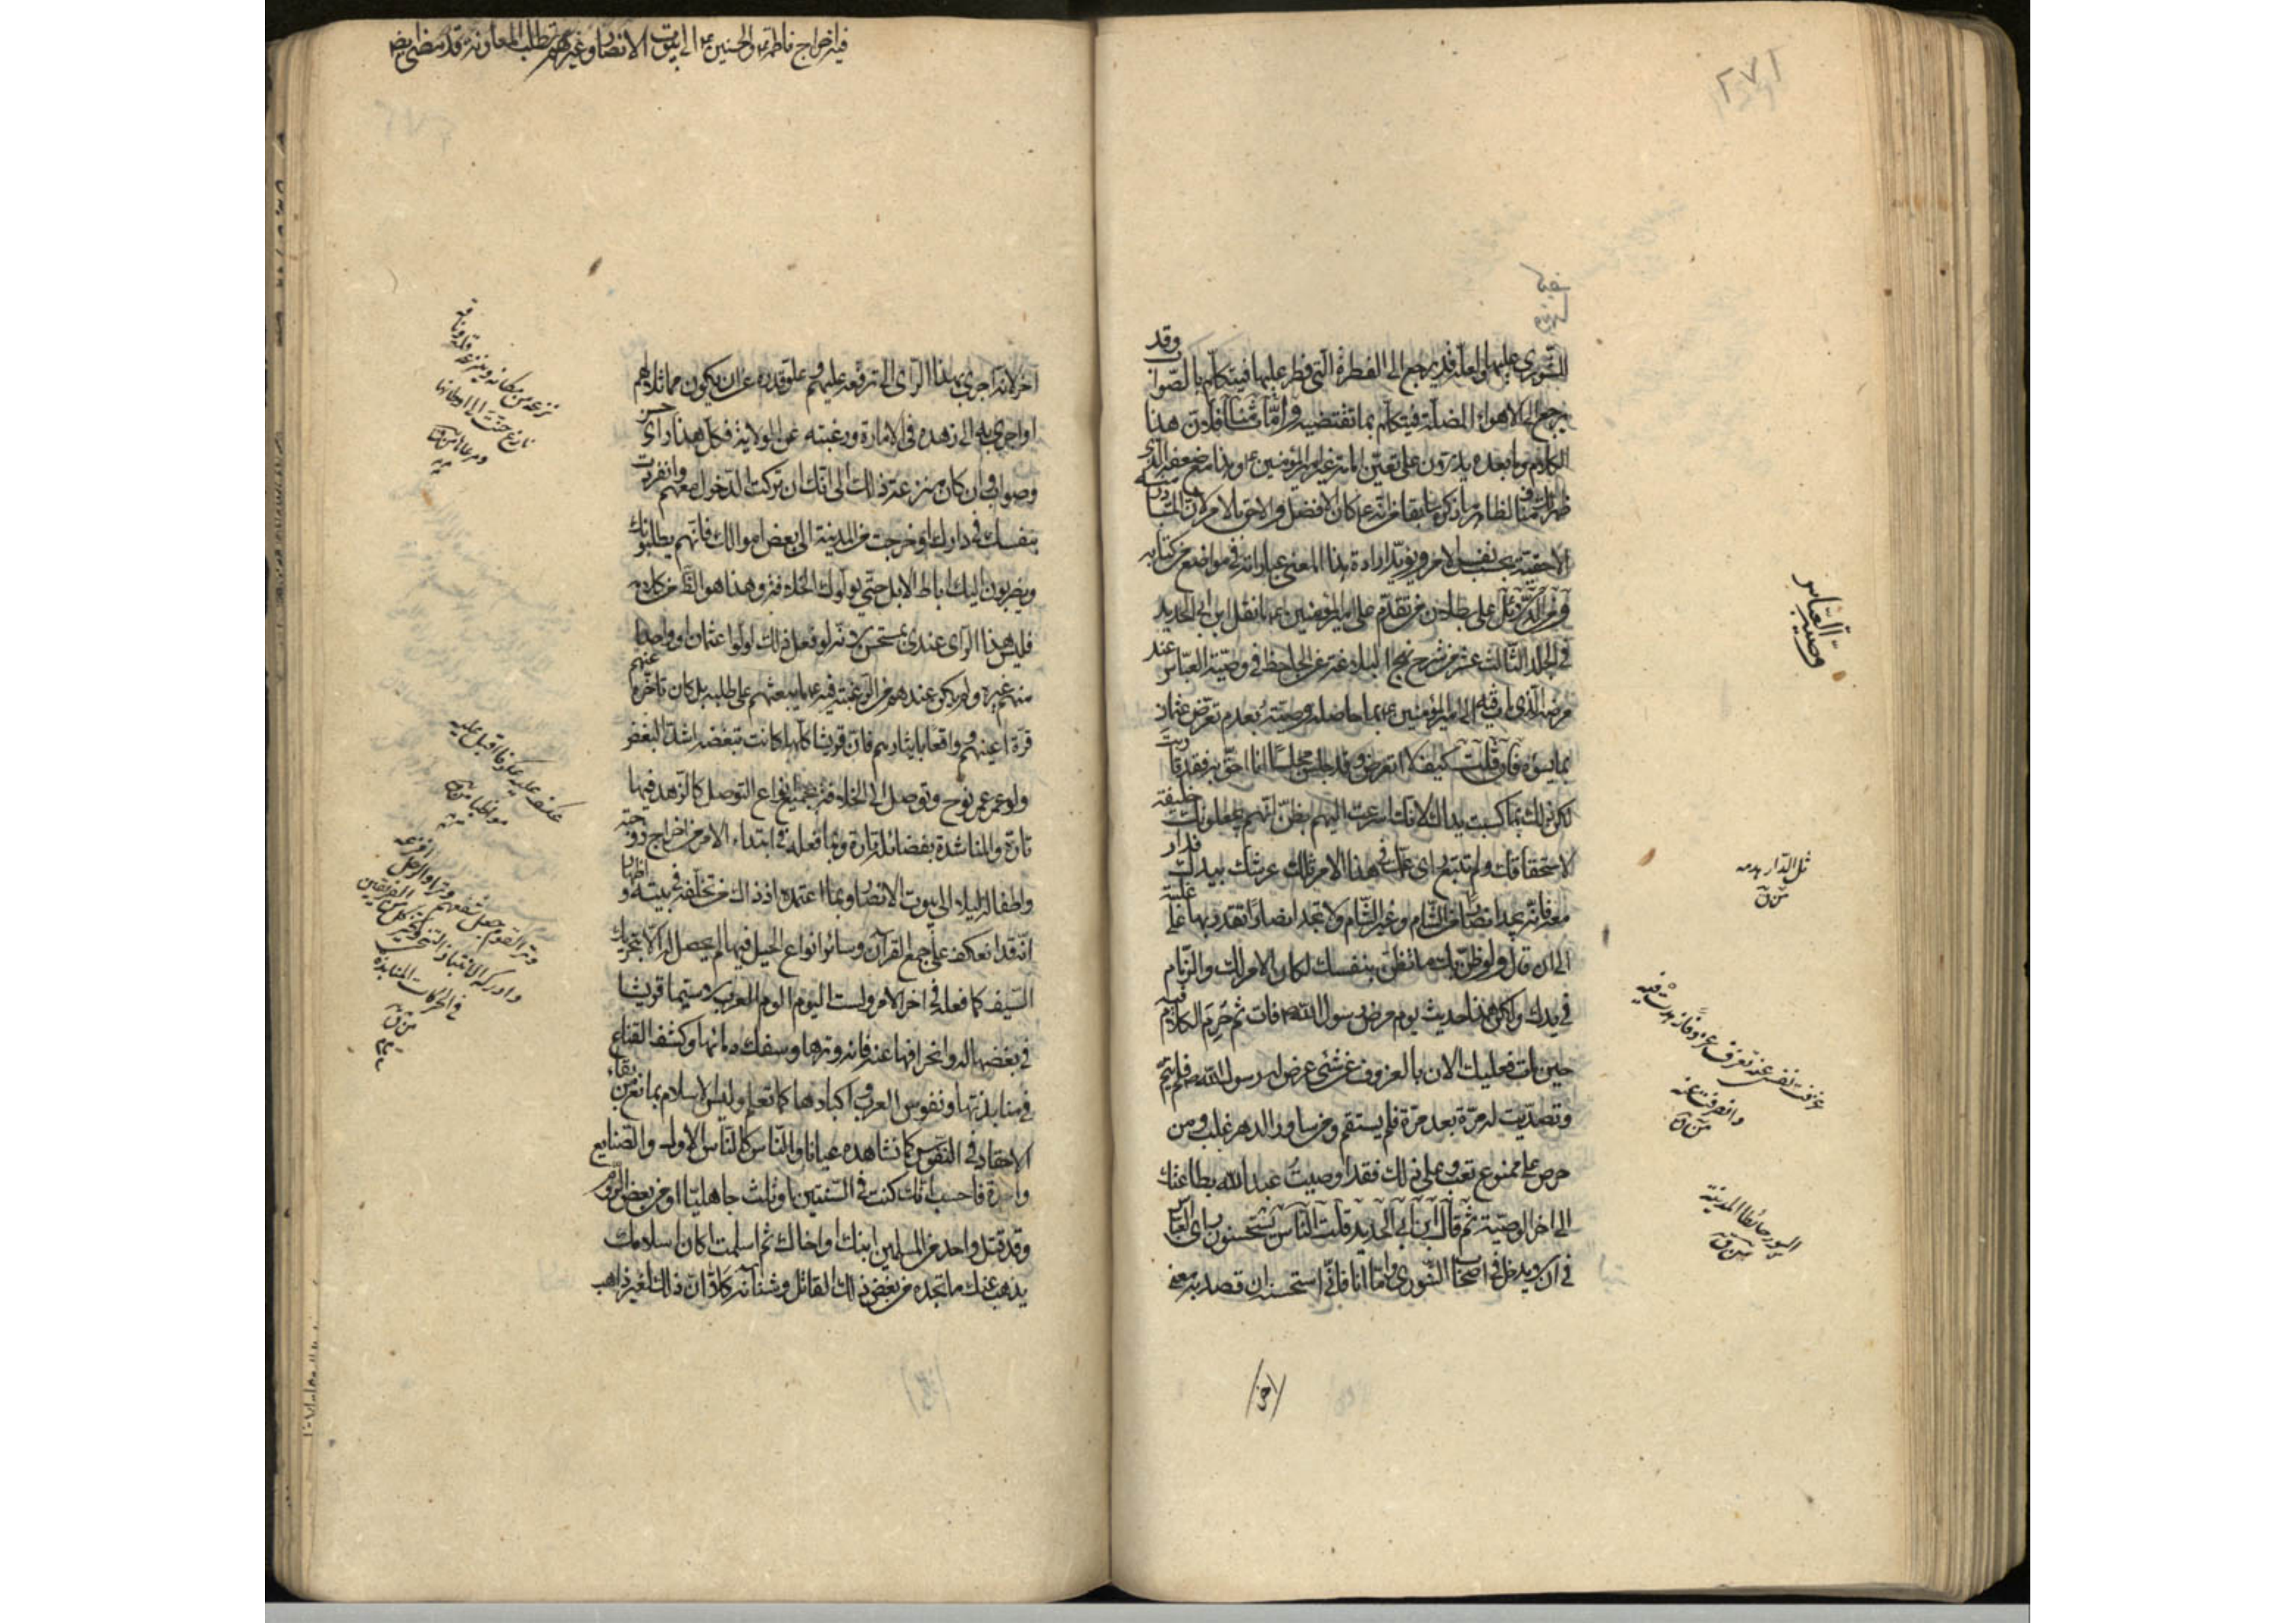 ٢٧١
الشورى عليهما ولعله قد يرجع الى الفطرة التى فطر عليها فيتكلم بالصواب وقد
يرجع الى الاهواء المضلة فيتكلم بما تقتضيه واما ثامنا فلان هذا
الكلام وما بعده يدلان على تعين امير المؤمنين ع وهذا مع ضعفه الذى
الاحقية بحسب نفس الامر ويؤيد ارادة هذا المعنى عباراته فى مواضع من كتابه
على بطلان من تقدم على امير المؤمنين ع ما نقل ابن ابى الحديد
فى الجلد الثالث عشر من شرح نهج البلاغة عن الجاحظ فى وصية العباس عند
مرضه الذى مات فيه الى امير المؤمنين ع بما حاصله وصيته بعدم تعرض عثمان
بما يسؤه فان قلت كيف لا اتعرض وقد جلس مجلسا انا احق به فقد قاربت
لكن ذلك بما كسبت يداك لانك اسرعت اليهم بظن انهم يجعلونك خليفة
لاستحقاقك ولم تتبع راى عمك فى هذا الامر ثللت عرشك بيدك
الى ان قال ولو ظن بك ما تظن بنفسك لكان الامر لك والزمام
فى يدك ولكن هذا حديث يوم مرض رسول الله ص فات ثم حرم الكلام فيه
حين مات فعليك الان بالعزوف عن شئ عرض له رسول الله ص فلم يتم
وتصديت له مرة بعد مرة فلم يستقم ومن ساور الدهر غلب ومن
حرص على ممنوع تعب وعلى ذلك فقد اوصيت عبد الله بطاعتك
الى اخر الوصية ثم قال ابن ابى الحديد قلت الناس يستحسنون راى العباس
فى ان لا يدخل فى اصحاب الشورى واما انا فانى استحسنه ان قصد به معنى
وصية العباس
ثل الدار هدمه
من ق
عزفت نفسى عنه تعزف عزوفا زهدت فيه
وانصرفت عنه
من ق
السور حائط المدينة
من ق
فيه اخراج فاطمة ع والحسنين ع الى بيوت الانصار وغيرهم تطلب المعاونة قد مضى ايضا
اخر لانه اجرى بهذا الراى الى ترفعه عليهم وعلو قدره عن ان يكون مماثلا لهم
او اجرى به الى زهده فى الامارة ورغبته عن الولاية فكل هذا راى حسن
وصواب وان كان منزعه ذلك الى انك ان تركت الدخول معهم وانفردت
بنفسك فى دارك او خرجت من المدينة الى بعض اموالك فانهم يطلبونك
ويضربون اليك اباط الابل حتى يولوك الخلافة وهذا هو الظ من كلامه
فليس هذا الراى عندى بمستحسن لانه لو فعل ذلك لولوا عثمان او واحدا
منهم غيره ولم يكن عندهم من الرغبة فيه ع ما يبعثهم على طلبه بل كان تاخره عنهم
قرة اعينهم وواقعا بايثارهم فان قريشا كلها كانت تبغضه اشد البغض
ولو عمر عمر نوح وتوصل الى الخلافة بجميع انواع التوصل كالزهد فيها
تارة والمناشدة بفضائله تارة وبما فعله فى ابتداء الامر من اخراج زوجته
واطفاله ليلا الى بيوت الانصار وبما اعتمده اذ ذاك من تخلفه فى بيته واظهار
انه قد انعكف على جمع القرآن وسائر انواع الحيل فيها لم يحصل له الا بتجريد
السيف كما فعله فى اخر الامر ولست اليوم الوم العرب لا سيما قريشا
فى بغضها له وانحرافها عنه فانه وترها وسفك دمائها وكشف القناع
فى منابذتها ونفوس العرب واكبادها كما تعلم وليس الاسلام بمانع من بقاء
الاحقاد فى النفوس كما نشاهده عيانا والناس كالناس الاول والصنايع
واحدة فاحسب انك كنت فى السنتين او ثلث جاهليا او من بعض الروم
وقد قتل واحد من المسلمين ابنك او اخاك ثم اسلمت اكان اسلامك
يذهب عنك ما تجده من بغض ذلك القاتل وشنآنه كلا ان ذلك لغير ذاهب
عكف عليه عكوفا اقبل عليه
مواظبا من ق